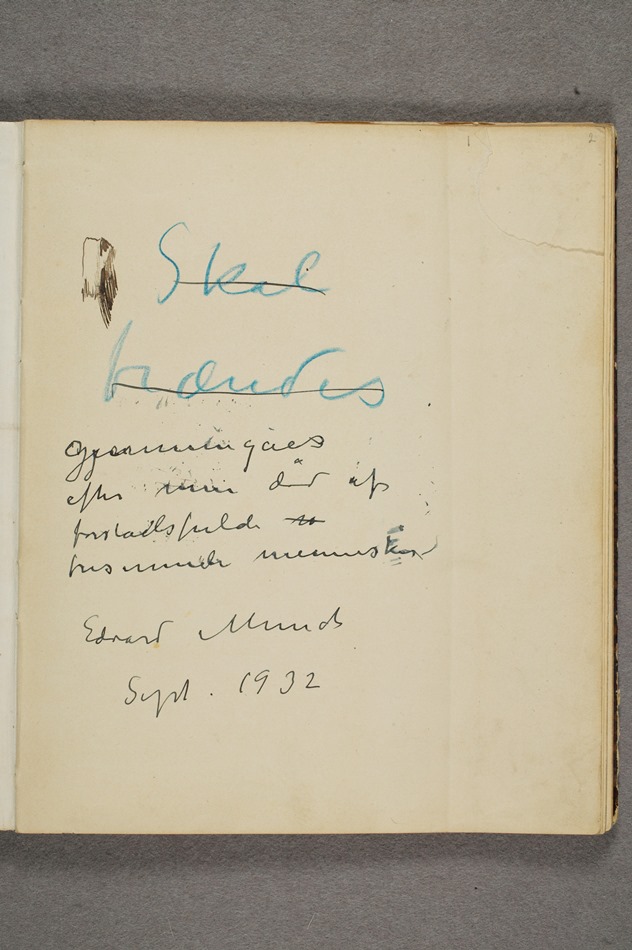 1 2
Skal
brændes
Gjennemgåes
efter min död af
forstaadsfulde
frisinnede mennesker
Edvard Munch
Sept. 1932